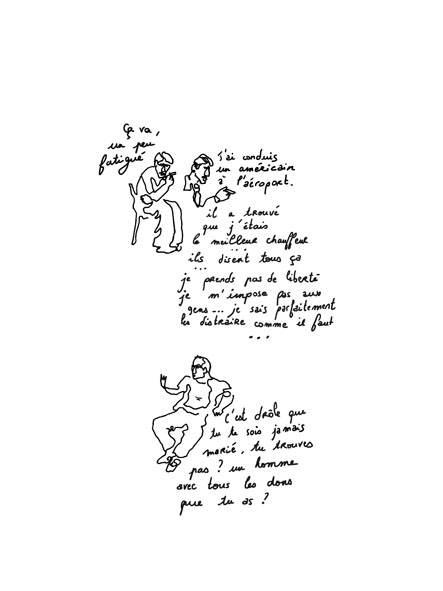 Ça va,
un peu
fatigué
J'ai conduis
un américain
à l'aéroport.
il a trouvé
que j'étais
le meilleur chauffeur
...
ils disent tous ça
...
je prends pas de liberté
je m'impose pas aux
gens... je sais parfaitement
les distraire comme il faut
...
c'est drôle que
tu te sois jamais
marié, tu trouves
pas ? un homme
avec tous les dons
que tu as ?